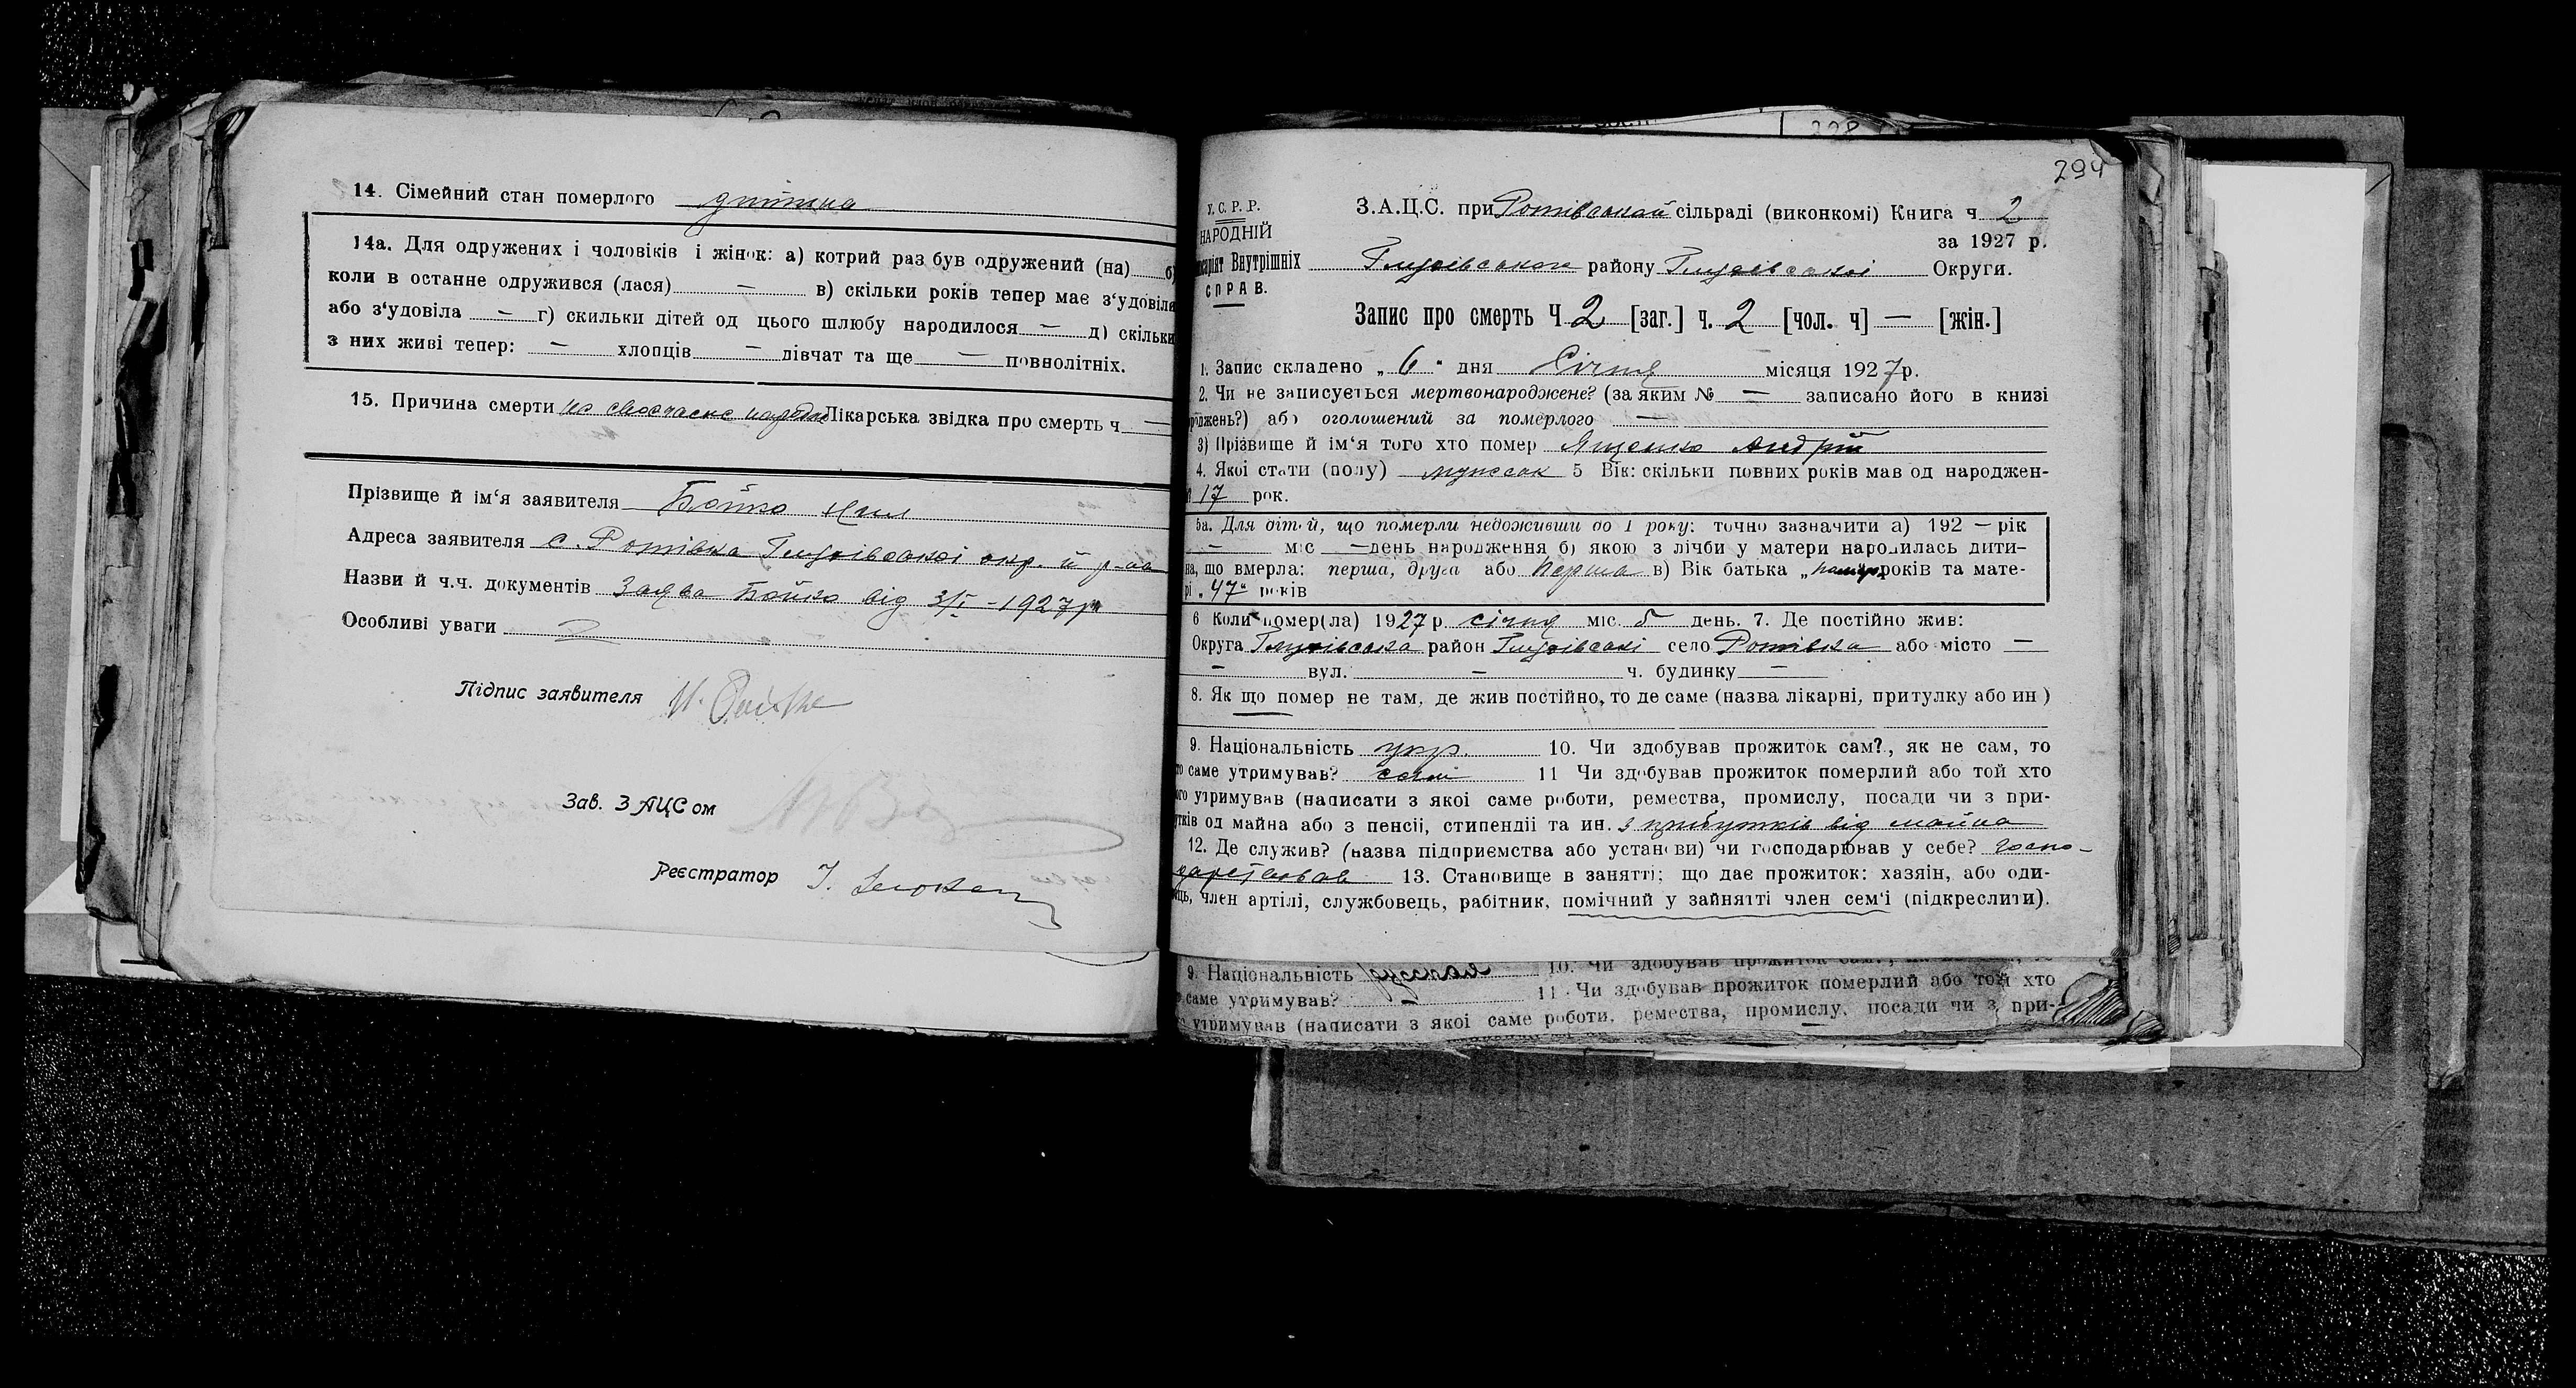 14. Сімейний стан померлого дитина
14а. Для одружених і чоловіків і жінок: а) котрий раз був одружений (на) б)
коли в останне одружився (лася) — в) скільки років тепер має з‘удовіли
або з‘удовіла — г) скильки дітей од цього шлюбу народилося — д) скільки
з них живі тепер: — хлопців — дівчат та ще — повнолітніх.
15. Причина смерти не своєчасне Лікарська звідка про смерть ч —
Прізвище й ім‘я заявителя Бойко
Адреса заявителя с. Ротівка Глухівської окр. й р-на
Назви й ч.ч. документів Заява Бойко від 3/I – 1927 р
Особливі уваги —
Підпис заявителя
Зав. ЗАЦСом
Реєстратор І.
294
У.С.Р.Р.
НАРОДНІЙ
Внутрішніх
СПРАВ.
З.А.Ц.С. при Ротівській сільраді (виконкомі) Книга ч 2
за 1927 р.
Глухівського району Глухівської Округи.
Запис про смерть Ч 2 [заг.] ч. 2 [чол. ч] — [жін.]
1. Запис складено „ 6 “ дня Січня місяця 1927р.
2. Чи не записується мертвонароджене? (за яким № — записано його в книзі
роджень?) або оголошений за померлого —
3) Прізвище й ім‘я того хто помер Ященко Андрій
4. Якої стати (полу) мужеськ 5 Вік: скільки повних років мав од народжен-
17 рок.
5а. Для дітей, що померли недоживши до 1 року: точно зазначити а) 192 — рік
— міс — день народження б) якою з лічби у матери народилась дити-
на, що вмерла: перша, друга або перша в) Вік батька „ років та мате-
рі „47“ років
6 Коли помер(ла) 1927 р. січня міс. 5 день. 7. Де постійно жив:
Округа Глухівська район Глухівські село Ротівка або місто —
— вул. — ч. будинку —
8. Як що помер не там, де жив постійно, то де саме (назва лікарні, притулку або ин )
9. Національність укр. 10. Чи здобував прожиток сам?, як не сам, то
саме утримував? сам 11 Чи здобував прожиток померлий або той хто
його утримував (написати з якоі саме роботи, ремества, промислу, посади чи з при-
утків од майна або з пенсії, стипендії та ин. з прибутків від майна
12. Де служив? (назва підприємства або установи) чи господарював у себе? госпо-
13. Становище в занятті; що дає прожиток: хазяін, або оди-
нець, член артілі, службовець, рабітник, помічний у зайнятті член сем‘і (підкреслити).
9. Національність 10. Чи здобував прожиток
саме утримував? 11 Чи здобував прожиток померлий або той хто
утримував (написати з якоі саме роботи, ремества, промислу, посади чи з при-